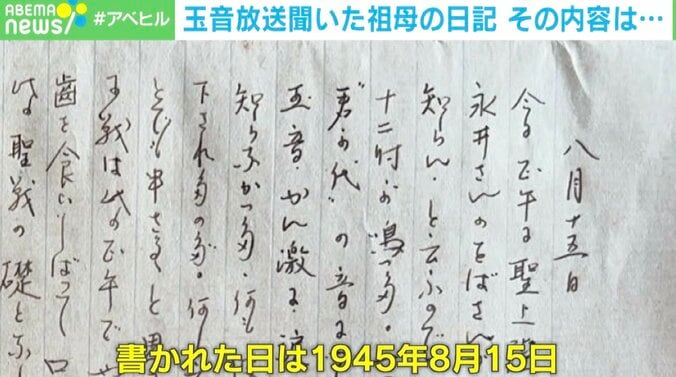 ABEMA
NEWS
#アベヒル
玉音放送聞いた祖母の日記 その内容は…
八月十五日
今日正午に聖上
永井さんのをばさん
知らん、と云ふので
十二時が鳴つた。
君が代の音に
玉音、かん激に
知らなかつた、何も
下されたのだ。何
とても申
戦は此の正午で
歯を食いしばつて
此の聖戦の礎と
書かれた日は1945年8月15日